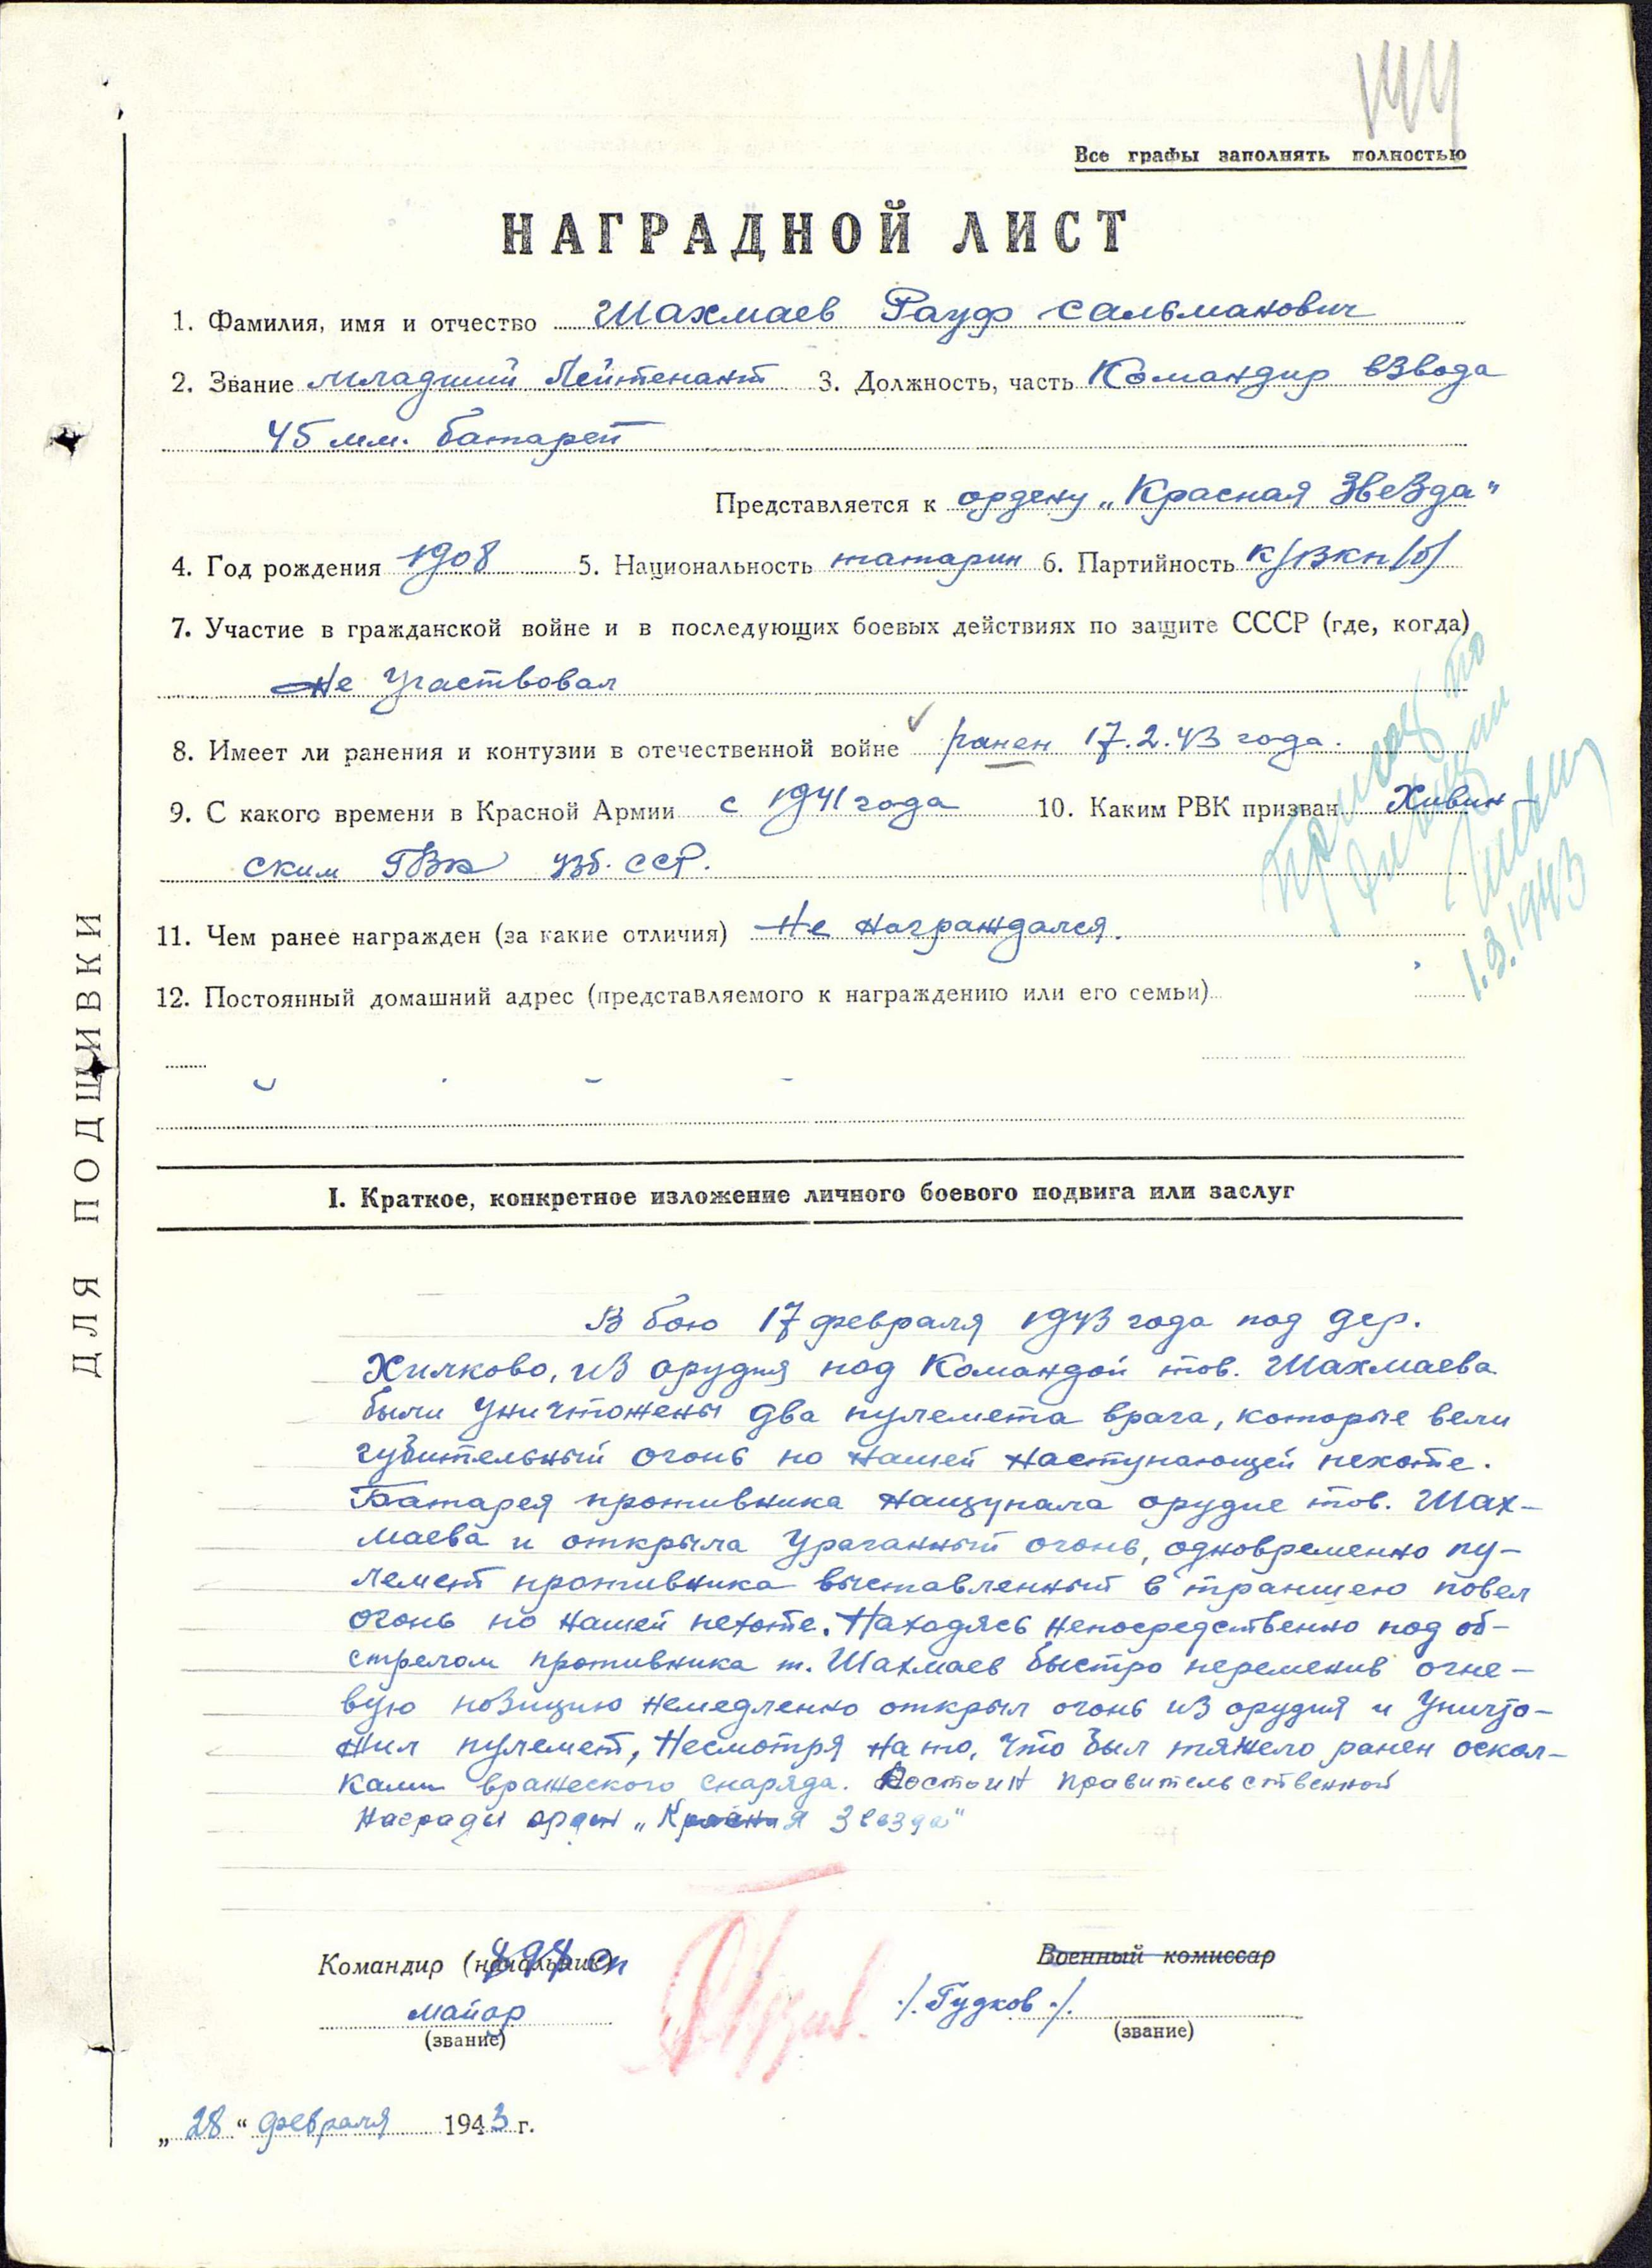 Все графы заполнять полностью
НАГРАДНОЙ ЛИСТ
1. Фамилия, имя и отчество Шахмаев Рауф Сальманович
2. Звание младший Лейтенант 3. Должность, часть Командир взвода
45 мм. батареи
Представляется к ордену „Красная Звезда"
4. Год рождения 1908 5. Национальность татарин 6. Партийность К/ВКП/б/
7. Участие в гражданской войне и в последующих боевых действиях по защите СССР (где, когда)
Не участвовал
8. Имеет ли ранения и контузии в отечественной войне ранен 17.2.43 года.
9. С какого времени в Красной Армии с 1941 года 10. Каким РВК призван Хивин-
ским ГВК Узб. ССР.
11. Чем ранее награжден (за какие отличия) Не награждался.
1.3.1943
12. Постоянный домашний адрес (представляемого к награждению или его семьи)
ДЛЯ ПОДШИВКИ
I. Краткое, конкретное изложение личного боевого подвига или заслуг
В бою 17 февраля 1943 года под дер.
Хилково, из орудия под Командой тов. Шахмаева
были уничтожены два пулемета врага, которые вели
губительный огонь по нашей наступающей пехоте.
Батарея противника нащупала орудие тов. Шах-
маева и открыла ураганный огонь, одновременно пу-
лемет противника выставленный в траншею повел
огонь по нашей пехоте. Находясь непосредственно под об-
стрелом противника т. Шахмаев быстро переменив огне-
вую позицию немедленно открыл огонь из орудия и уничто-
жил пулемет, Несмотря на то, что был тяжело ранен оскол-
ками вражеского снаряда. Достоин правительственной
награды орден „Красная Звезда"
Командир (начальник) сп
Военный комиссар
майор /. Гудков ./.
(звание) (звание)
„28" февраля 1943 г.